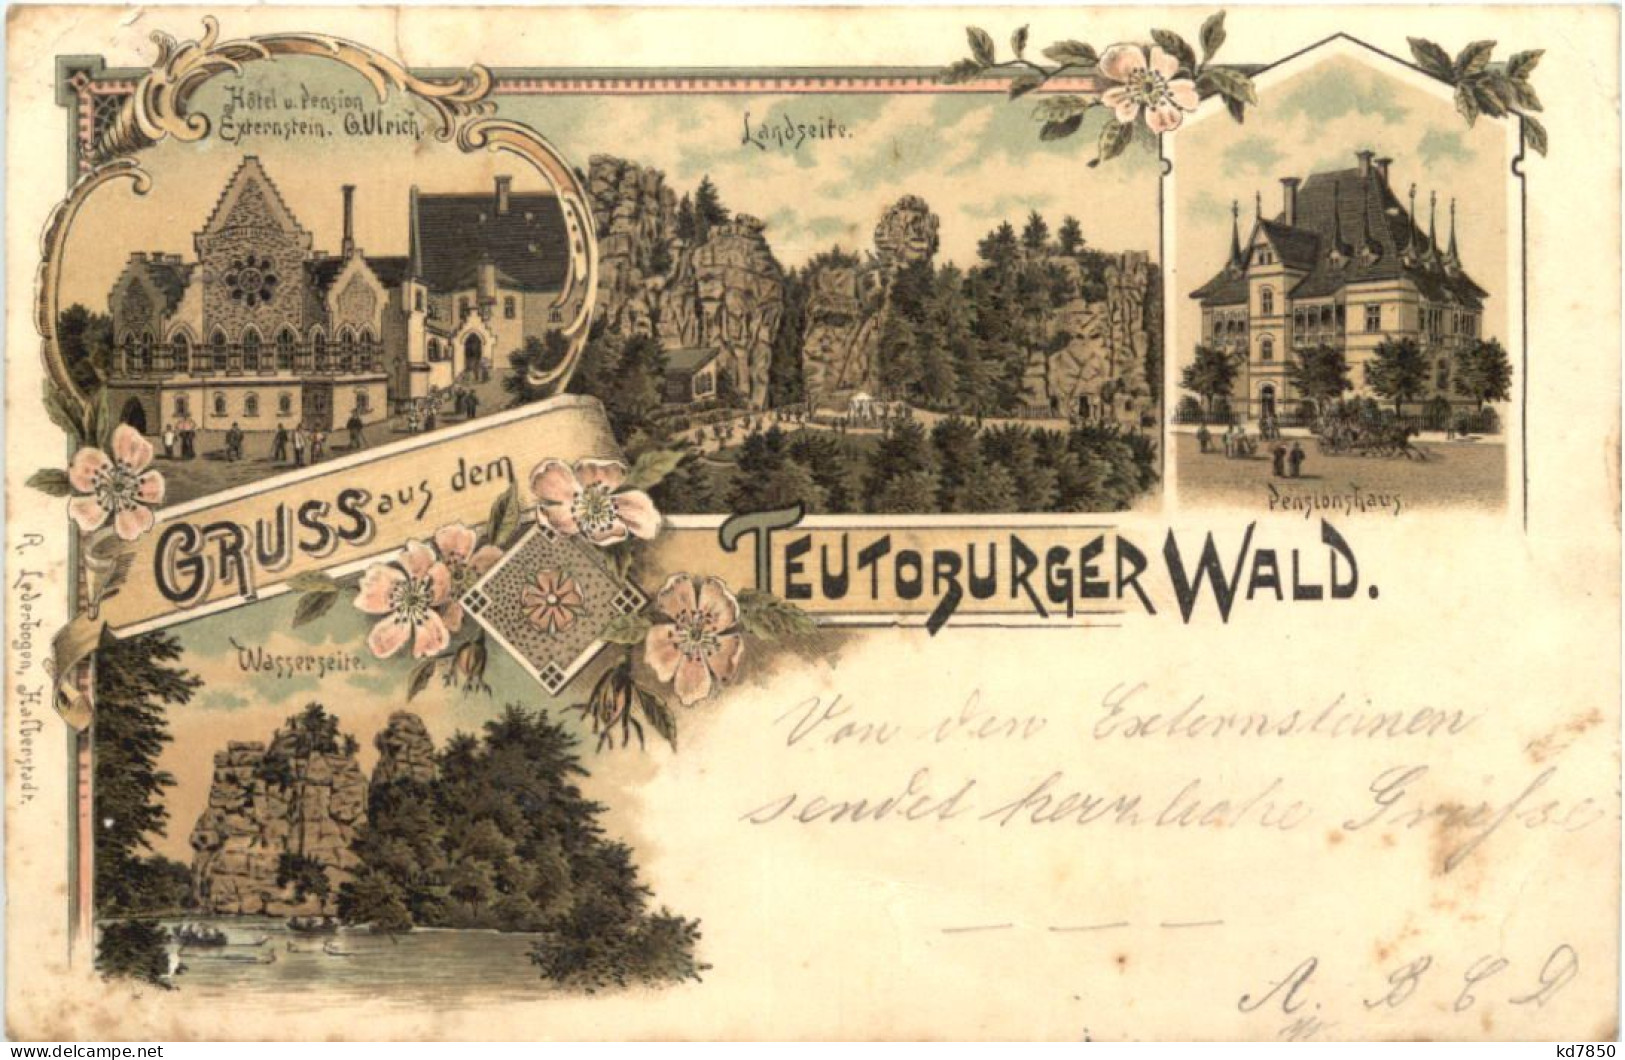 Hôtel u. Pension
Externstein. G. Ulrich.
Landseite.
Pensionshaus.
GRUSS aus dem
TEUTOBURGER WALD.
Wasserseite.
R. Lederbogen, Halberstadt.
Von den Externsteinen
sendet herzliche Grüsse
A. B C D
kd7850